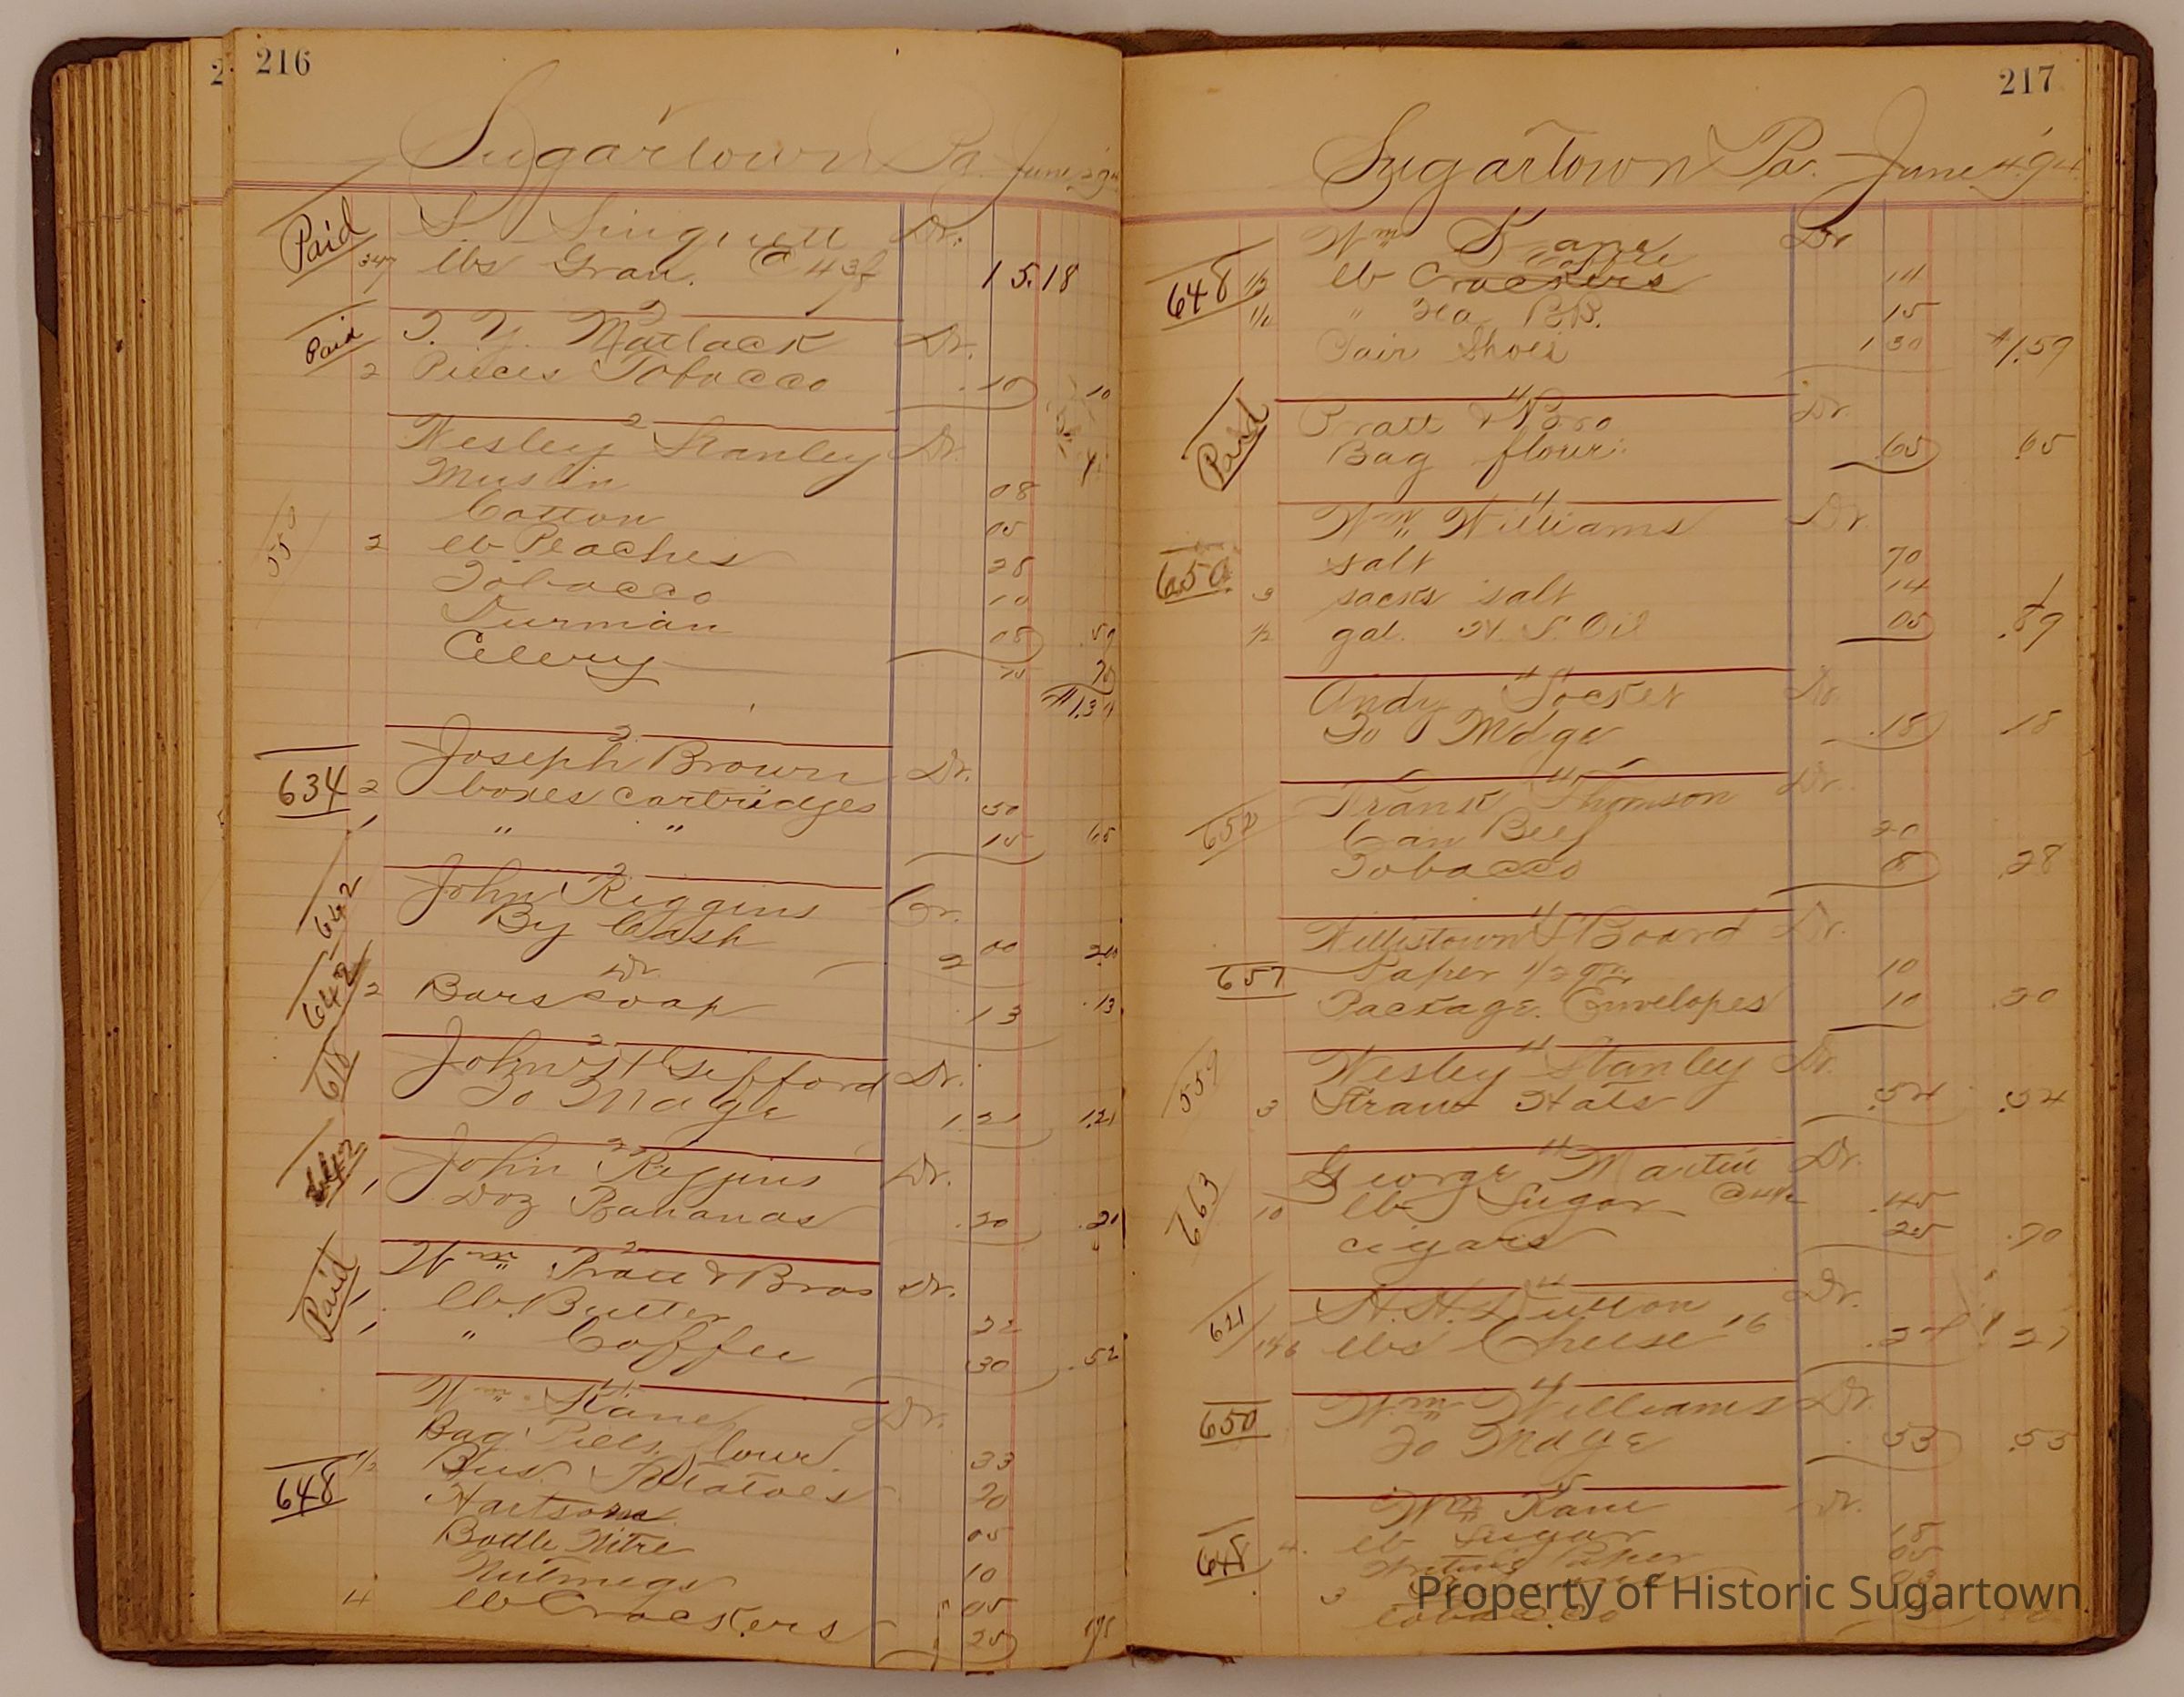 216
Sugartown Pa. June 2 94
Paid S. Dr.
347 lbs Gran. @ 4 3/8 15.18
2
Paid T. Y. Matlack Dr.
2 Pieces Tobacco .10 10
2
Wesley Stanley Dr.
Muslin 08
Cotton 05
2 lb Peaches 28
Tobacco 10
08 .59
Celery 75 75
$1.34
2
634 Joseph Brown Dr.
2 boxes cartridges 50
1 " " 15 65
2
642 John Riggins Cr.
By Cash 2 00 2.00
Dr
642 2 Bars soap .13 .13
2
618 John Gifford Dr.
To Mdge 1.21 1.21
2
642 John Riggins Dr.
1 Doz Bananas .20 .20
2
Paid Wm Pratt & Bros Dr.
1 lb. Butter 22
1 " Coffee 30 .52
4
Wm Kane Dr.
Bag Pills. flour. 33
648 1/2 Bus. Potatoes 20
05
Bottle Nitre 10
Nutmegs 05
4 lb Crackers 25
217
Sugartown Pa. June 4. 94.
Wm Kane Dr
648 1/2 lb Coffee 14
1/4 " Tea B.B. 15
Pair Shoes 1 30 $1.59
4
Paid Pratt & Bro Dr
Bag flour .65 .65
4
Wm Williams Dr.
650 salt 70
3 sacks salt 14
1/2 gal. H. L. Oil 05 .89
4
Andy Locker Dr.
To Mdge .18 18
4
652 Frank Thomson Dr.
Can Beef 20
Tobacco 8 .28
4
Willistown S Board Dr.
657 Paper 1/2 qr. 10
Package. Envelopes 10 .20
4
559 Wesley Stanley Dr.
3 Straw Hats .54 .54
4
663 George Martin Dr.
10 lb Sugar @ 4 1/2 .45
cigars 25 .70
4
621 H. H. Dutton Dr.
lbs Cheese 16 .27 27
4
650 Wm Williams Dr
To Mdge .53 .53
5
Wm Kane Dr.
648 4 lb Sugar 18
Writing Paper 05
3
tobacco
Property of Historic Sugartown